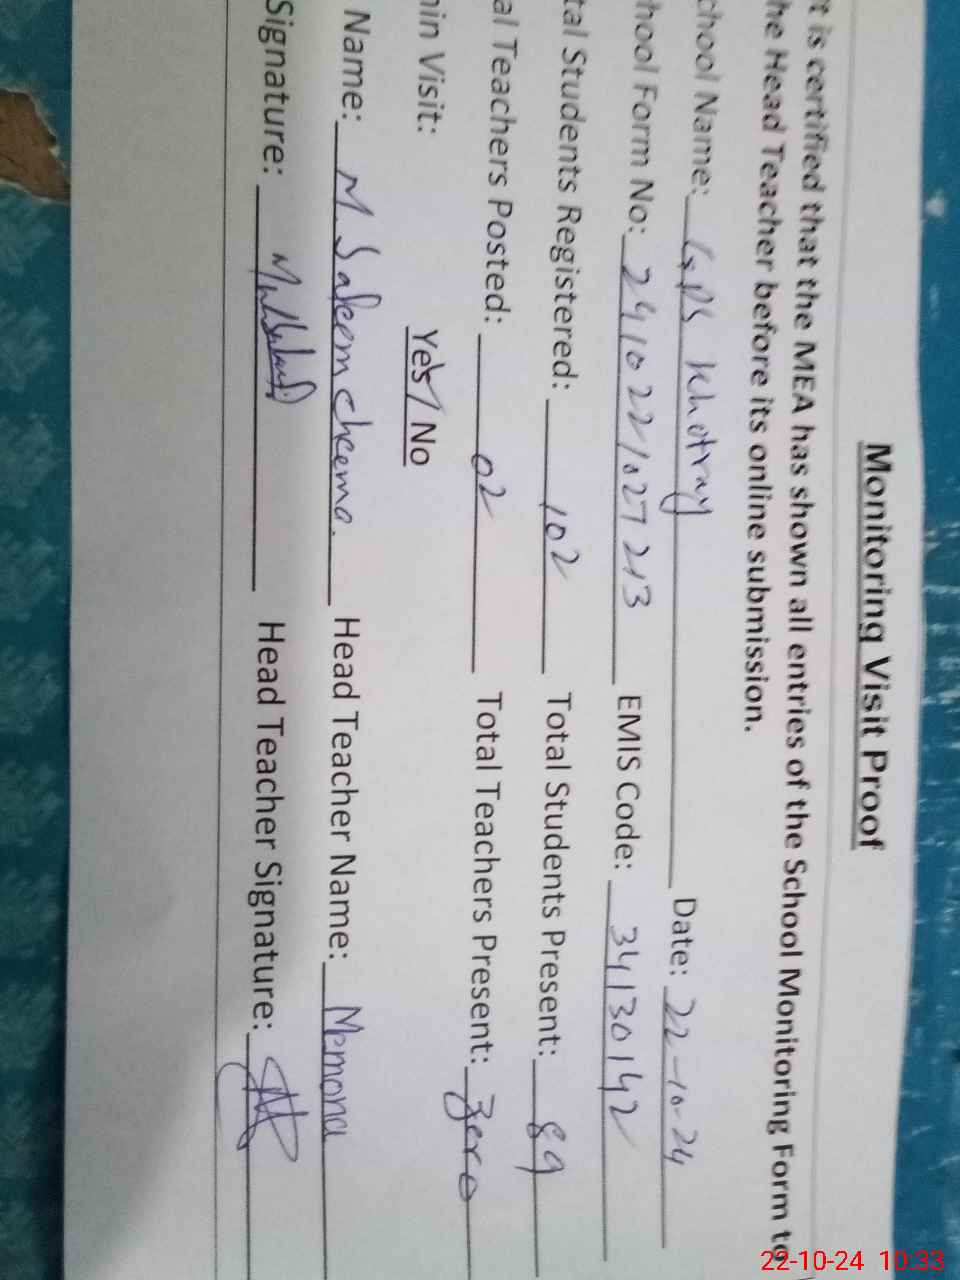 Monitoring Visit Proof
t is certified that the MEA has shown all entries of the School Monitoring Form to
he Head Teacher before its online submission.
chool Name: GPS Khotray Date: 22-10-24
hool Form No: 2410221027213 EMIS Code: 34130142
tal Students Registered: 102 Total Students Present: 89
al Teachers Posted: 02 Total Teachers Present: Zero
in Visit: Yes / No
Name: M Saleem cheema. Head Teacher Name: Memona
Signature: Head Teacher Signature:
22-10-24 10:33